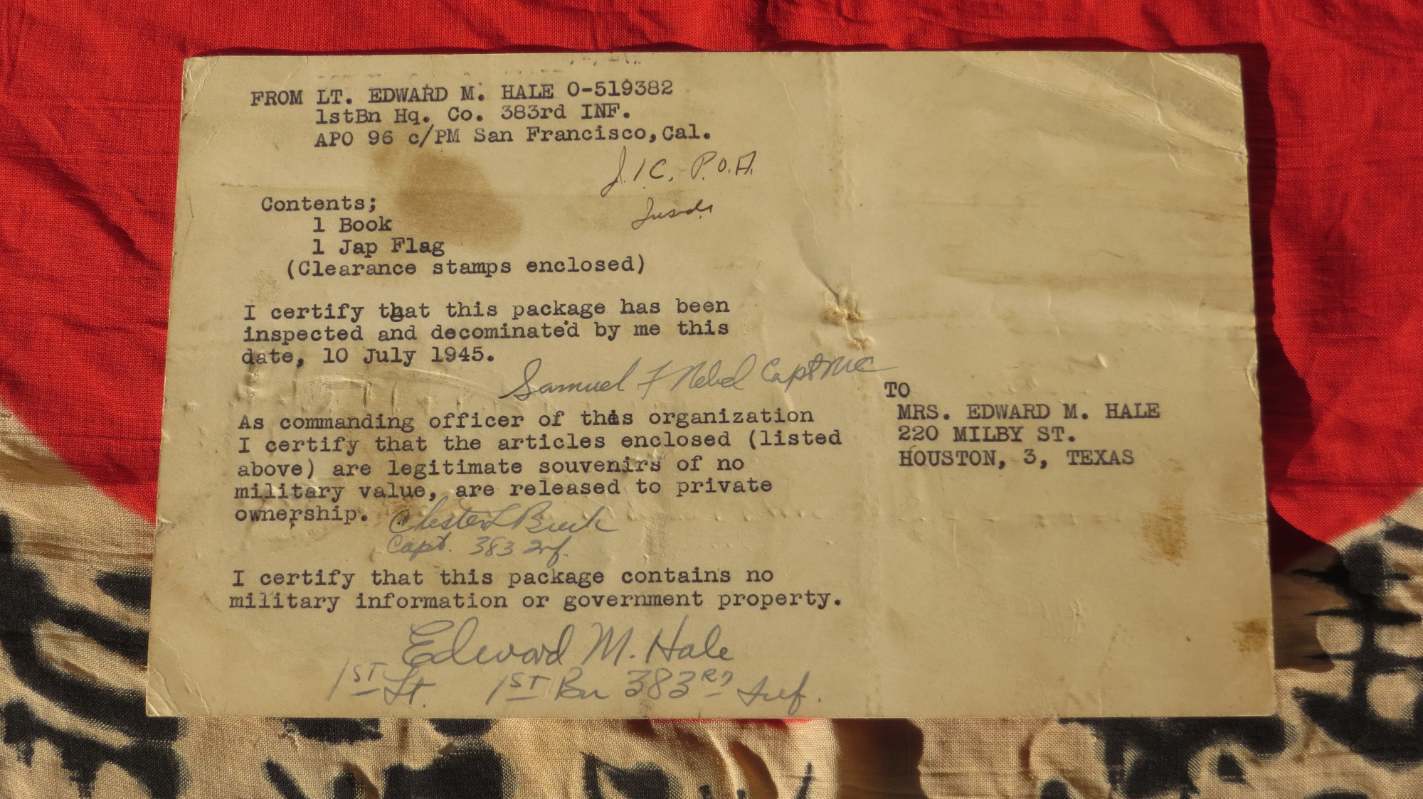 FROM LT. EDWARD M. HALE O-519382
1stBn Hq. Co. 383rd INF.
APO 96 c/PM San Francisco, Cal.
J.I.C. P.O.A.
Contents;
1 Book
1 Jap Flag
(Clearance stamps enclosed)
I certify that this package has been
inspected and decominated by me this
date, 10 July 1945.
Samuel F Nebel Capt
As commanding officer of this organization
I certify that the articles enclosed (listed
above) are legitimate souvenirs of no
military value, are released to private
ownership.
Chester L
Capt. 383 Inf.
I certify that this package contains no
military information or government property.
Edward M. Hale
1ST Lt. 1ST Bn 383RD Inf.
TO
MRS. EDWARD M. HALE
220 MILBY ST.
HOUSTON, 3, TEXAS